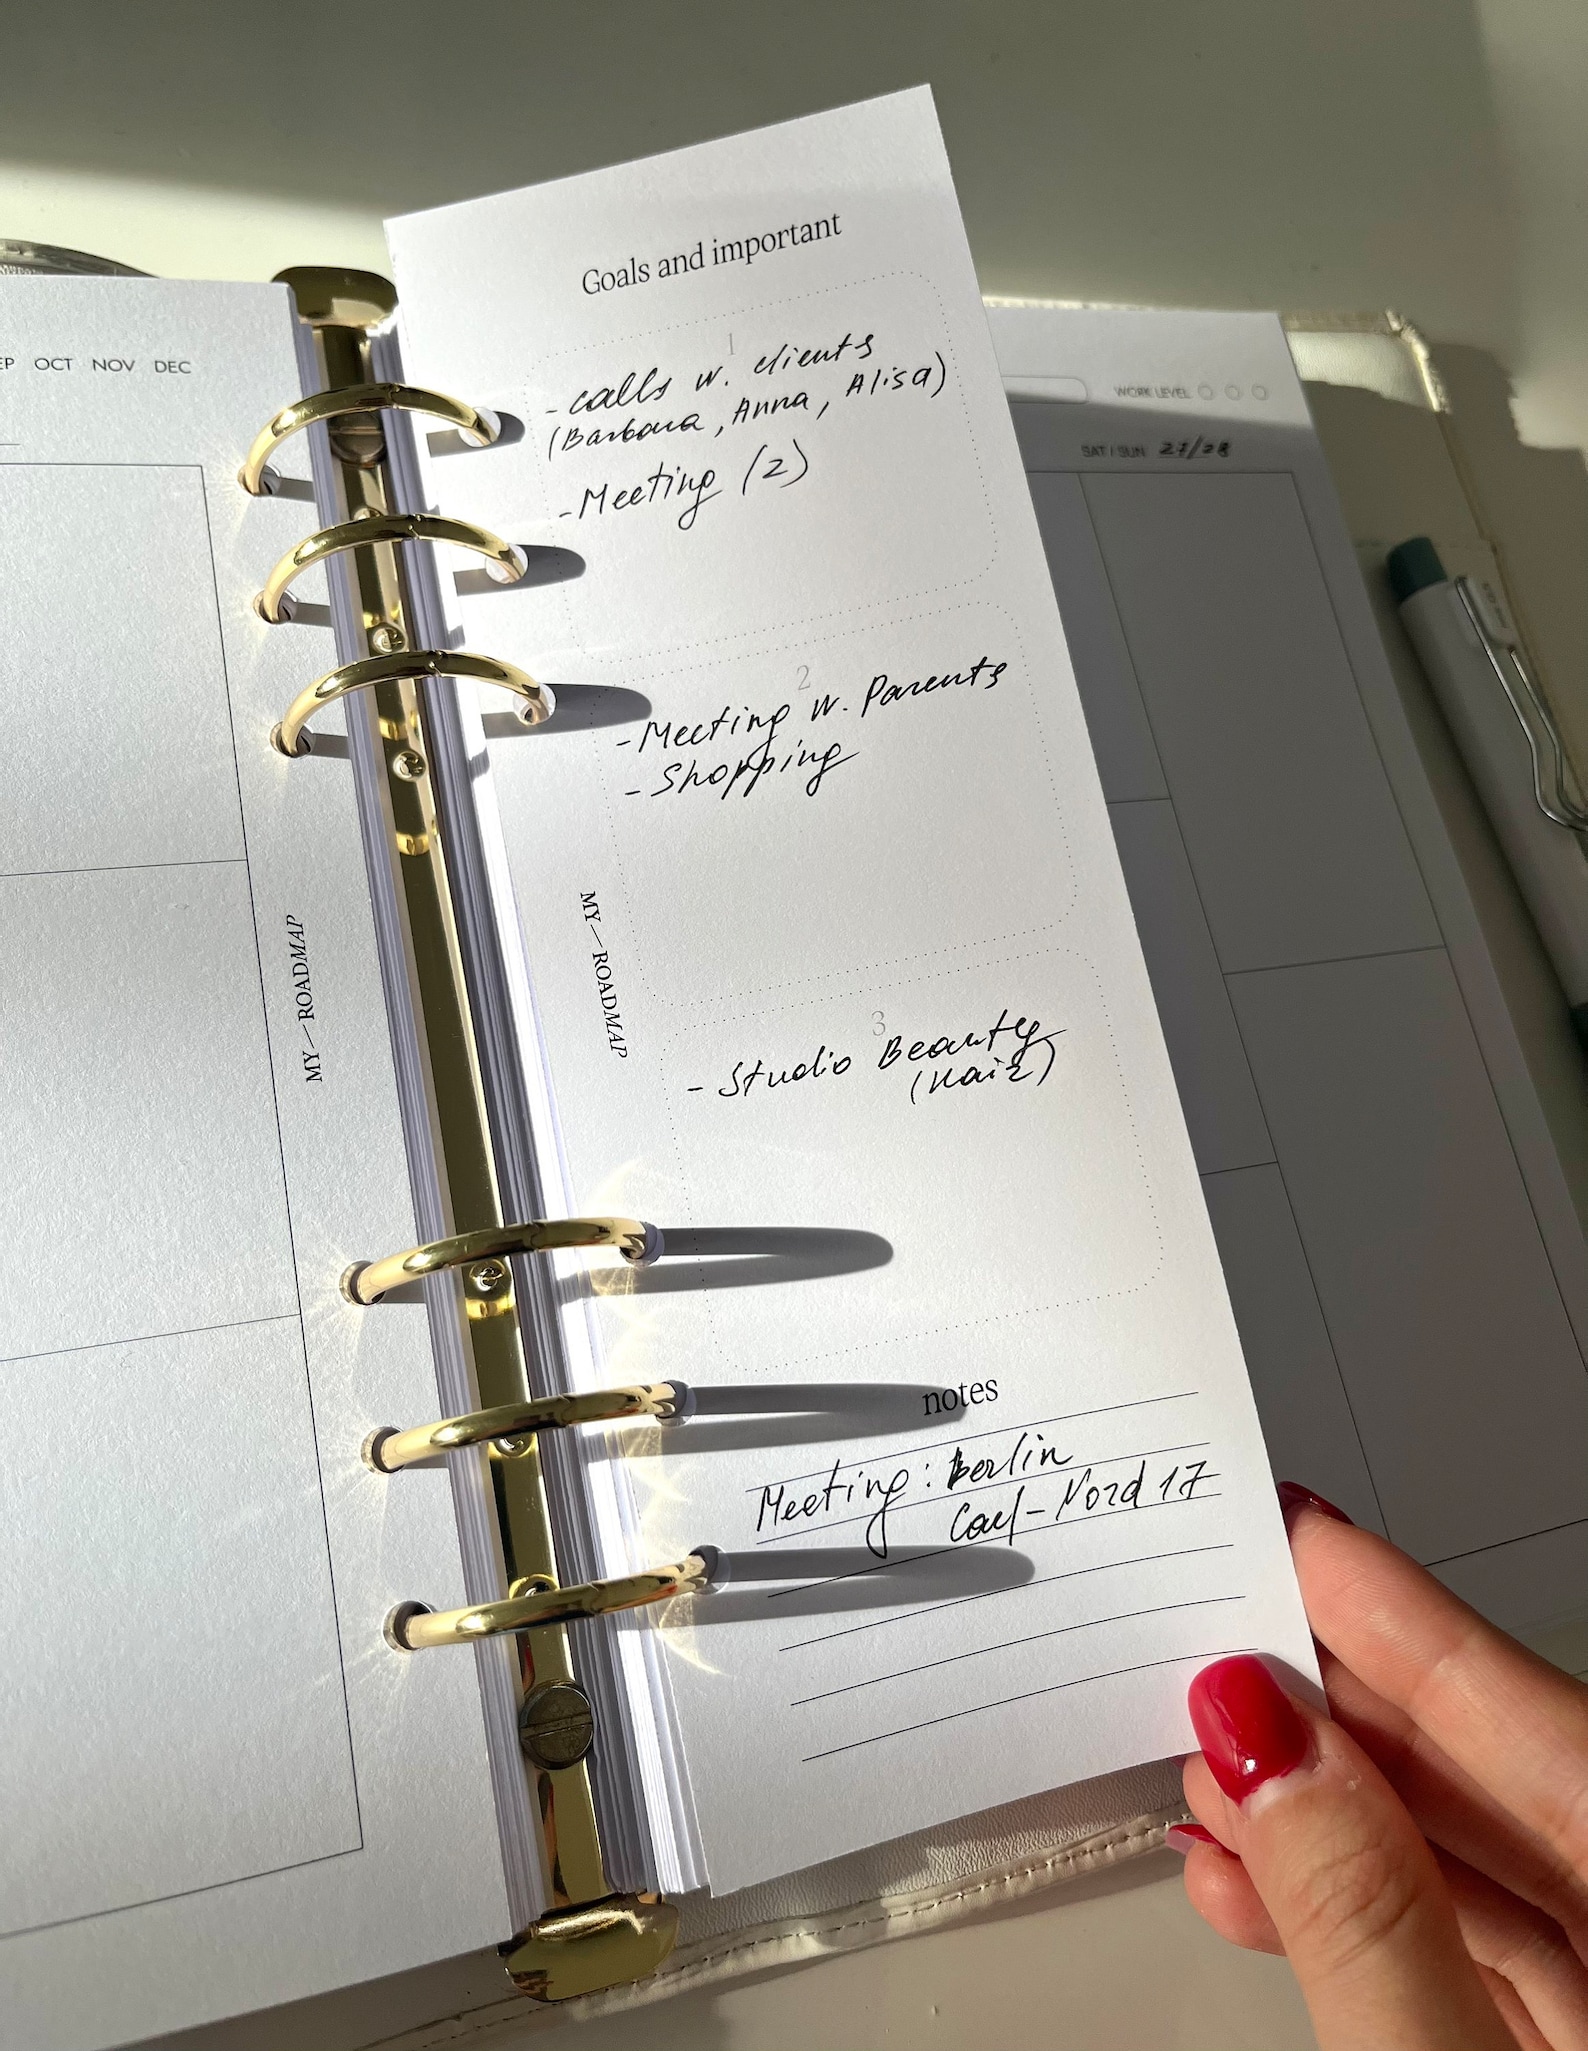 OCT NOV DEC
MY—ROADMAP
Goals and important
1
- calls w. clients
(Barbara, Anna, Alisa)
- Meeting (2)
2
- Meeting w. Parents
- Shopping
3
- Studio Beauty
(Hair)
MY—ROADMAP
notes
Meeting: Berlin
Carl-Nord 17
WORK LEVEL
SAT / SUN 27/28